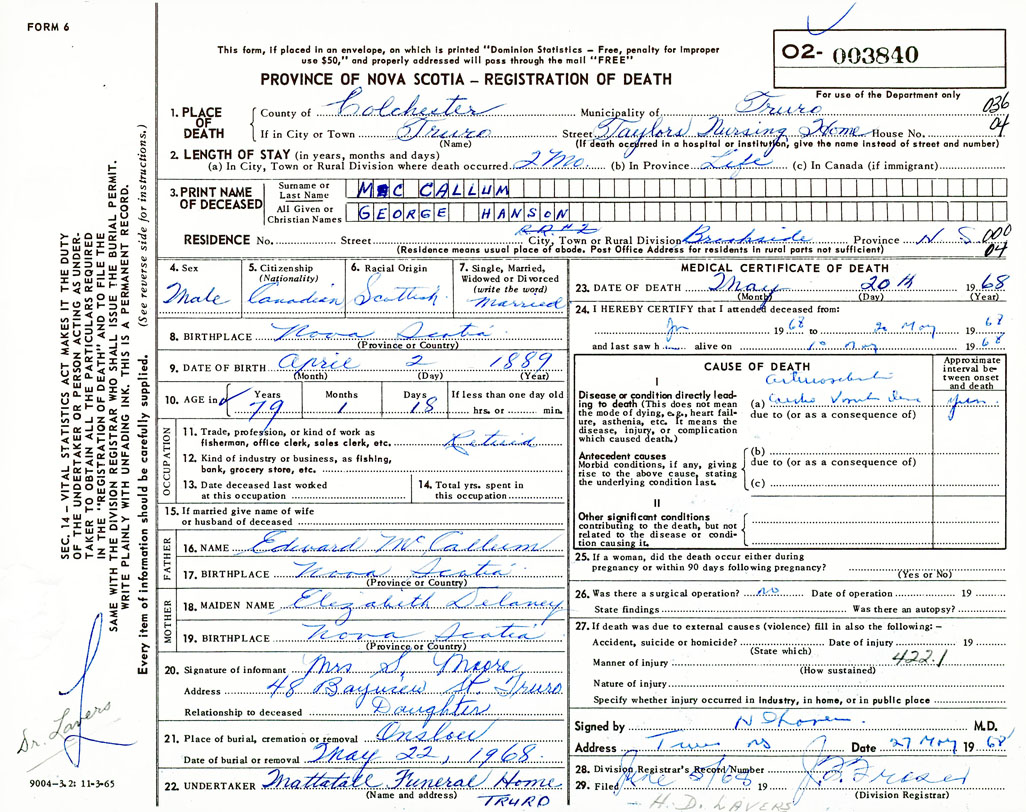 FORM 6
This form, if placed in an envelope, on which is printed "Dominion Statistics – Free, penalty for improper
use $50," and properly addressed will pass through the mail "FREE"
PROVINCE OF NOVA SCOTIA – REGISTRATION OF DEATH
O2- 003840
For use of the Department only
036
04
1. PLACE OF DEATH
County of Colchester Municipality of Truro
If in City or Town Truro Street Taylors Nursing Home House No.
(Name) (If death occurred in a hospital or institution, give the name instead of street and number)
2. LENGTH OF STAY (in years, months and days)
(a) In City, Town or Rural Division where death occurred 2 Mo (b) In Province Life (c) In Canada (if immigrant)
3. PRINT NAME OF DECEASED
Surname or Last Name McCALLUM
All Given or Christian Names GEORGE HANSON
R.R.#2
RESIDENCE No. Street City, Town or Rural Division Brookside Province N S 000
04
(Residence means usual place of abode. Post Office Address for residents in rural parts not sufficient)
4. Sex
Male
5. Citizenship (Nationality)
Canadian
6. Racial Origin
Scottish
7. Single, Married, Widowed or Divorced (write the word)
Married
8. BIRTHPLACE Nova Scotia
(Province or Country)
9. DATE OF BIRTH April 2 1889
(Month) (Day) (Year)
10. AGE in Years Months Days If less than one day old
79 1 18 hrs. or min.
OCCUPATION
11. Trade, profession, or kind of work as
fisherman, office clerk, sales clerk, etc. Retired
12. Kind of industry or business, as fishing,
bank, grocery store, etc.
13. Date deceased last worked
at this occupation
14. Total yrs. spent in
this occupation
15. If married give name of wife
or husband of deceased
FATHER
16. NAME Edward McCallum
17. BIRTHPLACE Nova Scotia
(Province or Country)
MOTHER
18. MAIDEN NAME Elizabeth Delaney
19. BIRTHPLACE Nova Scotia
(Province or Country)
20. Signature of informant Mrs S. Moore
Address 48 Bayview St. Truro
Relationship to deceased Daughter
21. Place of burial, cremation or removal Onslow
Date of burial or removal May 22, 1968
22. UNDERTAKER Mattatall Funeral Home
(Name and address) TRURO
MEDICAL CERTIFICATE OF DEATH
23. DATE OF DEATH May 20th 1968
(Month) (Day) (Year)
24. I HEREBY CERTIFY that I attended deceased from:
1968 to 20 May 1968
and last saw h alive on May 1968
CAUSE OF DEATH
Approximate interval between onset and death
I
Disease or condition directly leading to death (This does not mean the mode of dying, e.g., heart failure, asthenia, etc. It means the disease, injury, or complication which caused death.)
(a)
due to (or as a consequence of)
Antecedent causes
Morbid conditions, if any, giving rise to the above cause, stating the underlying condition last.
(b)
due to (or as a consequence of)
(c)
II
Other significant conditions
contributing to the death, but not related to the disease or condition causing it.
25. If a woman, did the death occur either during
pregnancy or within 90 days following pregnancy?
(Yes or No)
26. Was there a surgical operation? no Date of operation 19
State findings Was there an autopsy?
27. If death was due to external causes (violence) fill in also the following: –
Accident, suicide or homicide? Date of injury 19
(State which)
Manner of injury 422.1
(How sustained)
Nature of injury
Specify whether injury occurred in industry, in home, or in public place
Signed by M.D.
Address Truro NS Date 27 May 1968
28. Division Registrar's Record Number
29. Filed 19
(Division Registrar)
H. D. LAVERS
SEC. 14 – VITAL STATISTICS ACT MAKES IT THE DUTY
OF THE UNDERTAKER OR PERSON ACTING AS UNDER-
TAKER TO OBTAIN ALL THE PARTICULARS REQUIRED
IN THE "REGISTRATION OF DEATH" AND TO FILE THE
SAME WITH THE DIVISION REGISTRAR WHO SHALL ISSUE THE BURIAL PERMIT.
WRITE PLAINLY WITH UNFADING INK. THIS IS A PERMANENT RECORD.
Every item of information should be carefully supplied. (See reverse side for instructions.)
Dr. Lavers
9004-3.2: 11-3-65